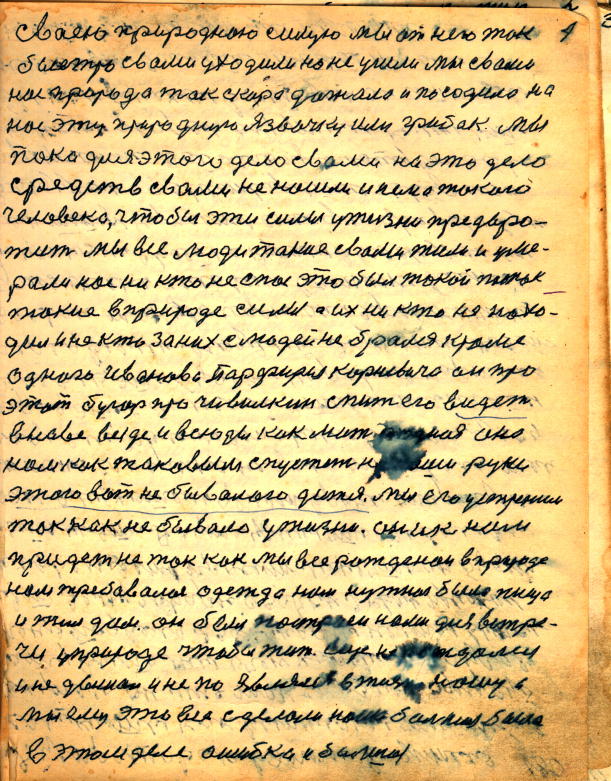 сваею природнаю силую мы от него так 1
быстро свами уходили но не ушли мы свами
нас природа так скоро дагнала и посадила на
нас эту природную язвочку или грибак. мы
пака для этого дело свами на это дело
средств свами не нашли и нема такого
человека, чтобы эти силы у жизни предъро-
тит мы все люди такие свами жили и уме-
рали нас ни кто не спас это был такой паток
такие в природе силы а их ни кто не нахо-
дил и не кто за них с людей не брался кроме
одного Иванова Парфирия Корневича он про
этот бугор про чивилкин спит его видет
в наве везде и всюды как мат родная она
нам как таковым спустет на наши руки
этого вот не бывалого детя. мы его устретим
так как не бывало у жизни. он ик нам
придет не так как мы все рожденаи в природе
нам требавалас одежда нам нужна была пища
и жил дом. он был нами для встре-
чи у природе чтобы жит еще не раждался
и не двигал и не по являлся в жизн нашу а
мы ему это все сделали наша балшая была
в этом деле ошибка и балшая